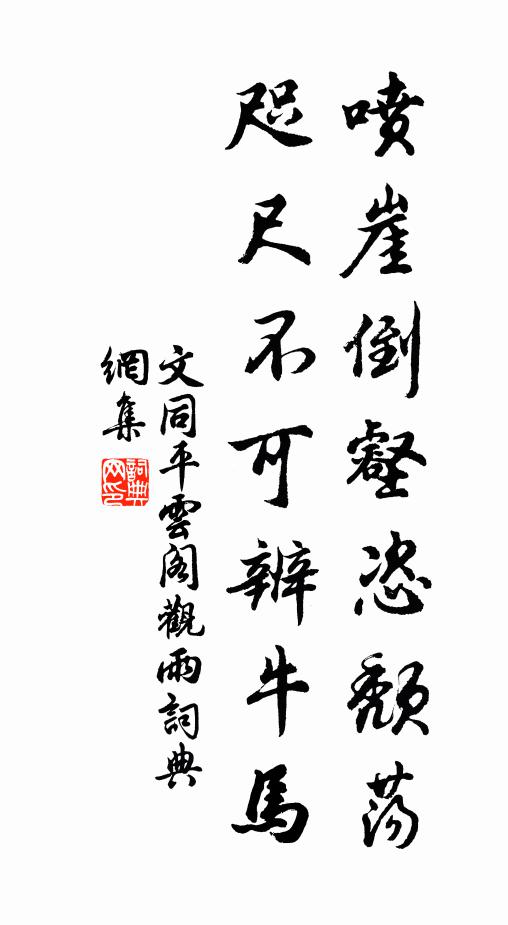 噴崖倒壑恣頹蕩
咫尺不可辨牛馬
文同平雲閣觀雨詞典
網集
詞典网印